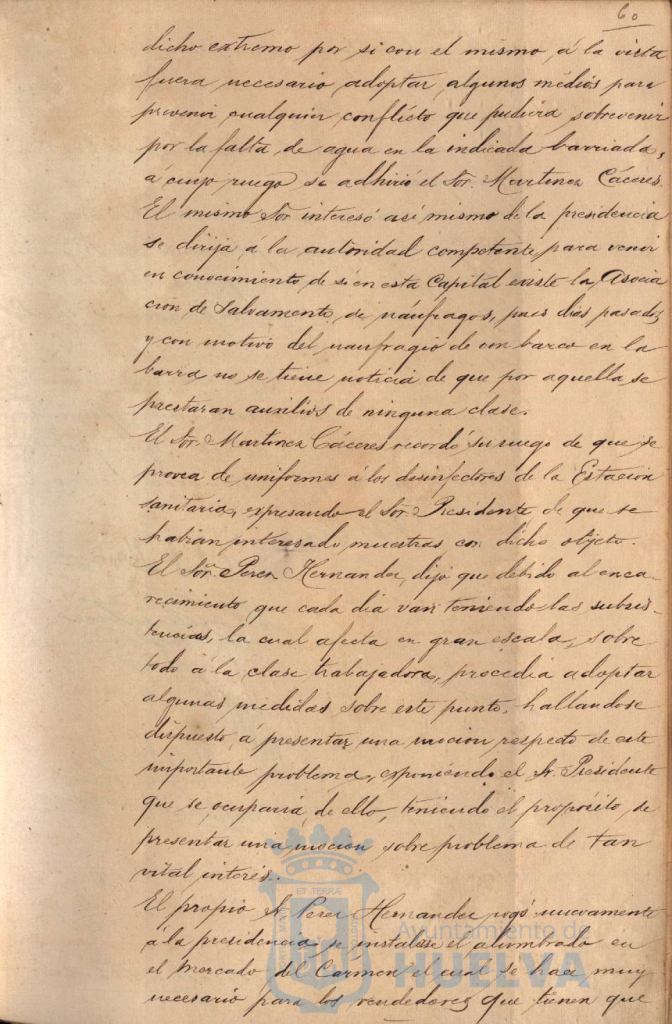 60
dicho extremo por si con el mismo, á la vista
fuera necesario adoptar algunos médios para
prevenir cualquier conflicto que pudiera sobrevenir
por la falta de agua en la indicada barriada,
á cuyo ruego se adhirió el Sor. Martinez Cáceres.
El mismo Sor interesó asi mismo de la presidencia
se dirija a la autoridad competente para venir
en conocimiento de si en esta Capital existe la Asocia
cion de Salvamento de náufragos, pues dias pasados
y con motivo del naufragio de un barco en la
barra no se tiene noticia de que por aquella se
prestaran auxilios de ninguna clase.
El Sor. Martinez Cáceres recordó su ruego de que se
provea de uniformes á los desinfectores de la Estacion
sanitaria, expresando el Sor. Presidente de que se
habian interesado muestras con dicho objeto.
El Sor. Perez Hernandez, dijo que debido al enca-
recimiento que cada dia van teniendo las subsis-
tencias, la cual afecta en gran escala, sobre
todo á la clase trabajadora, procedia adoptar
algunas medidas sobre este punto, hallandose
dispuesto á presentar una mocion respecto de este
importante problema, exponiendo el Sr. Presidente
que se ocuparia de ello, teniendo el propósito de
presentar una mocion sobre problema de tan
vital interés.
El propio Sr Perez Hernandez rogó nuevamente
á la presidencia se instalase el alumbrado en
el Mercado del Cármen el cual se hace muy
necesario para los vendedores que tienen que
Ayuntamiento de
HUELVA